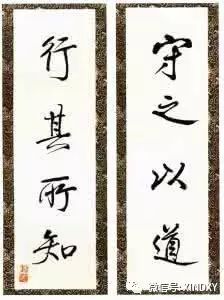 守之以道
行其所知
微信号: XINDXY